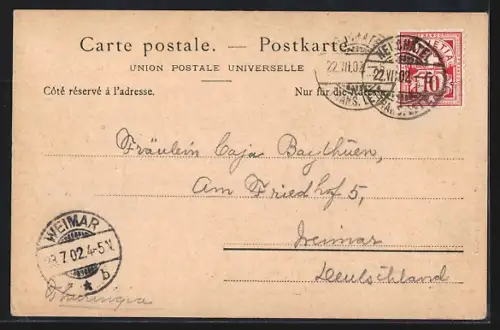 Carte postale. — Postkarte.
UNION POSTALE UNIVERSELLE
Côté réservé à l'adresse.
Nur für die Adresse.
NEUCHÂTEL
22.VII.02.
22.VII.02.
FRANCO
HELVETIA
10
Fräulein Caja Baythien,
Am Friedhof 5,
Weimar
Deutschland
WEIMAR
23.7.02.4-5 V.
* b
Thuringia